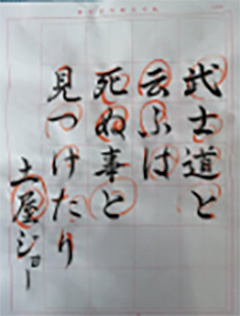 武士道と
云ふは
死ぬ事と
見つけたり
土屋ジョー